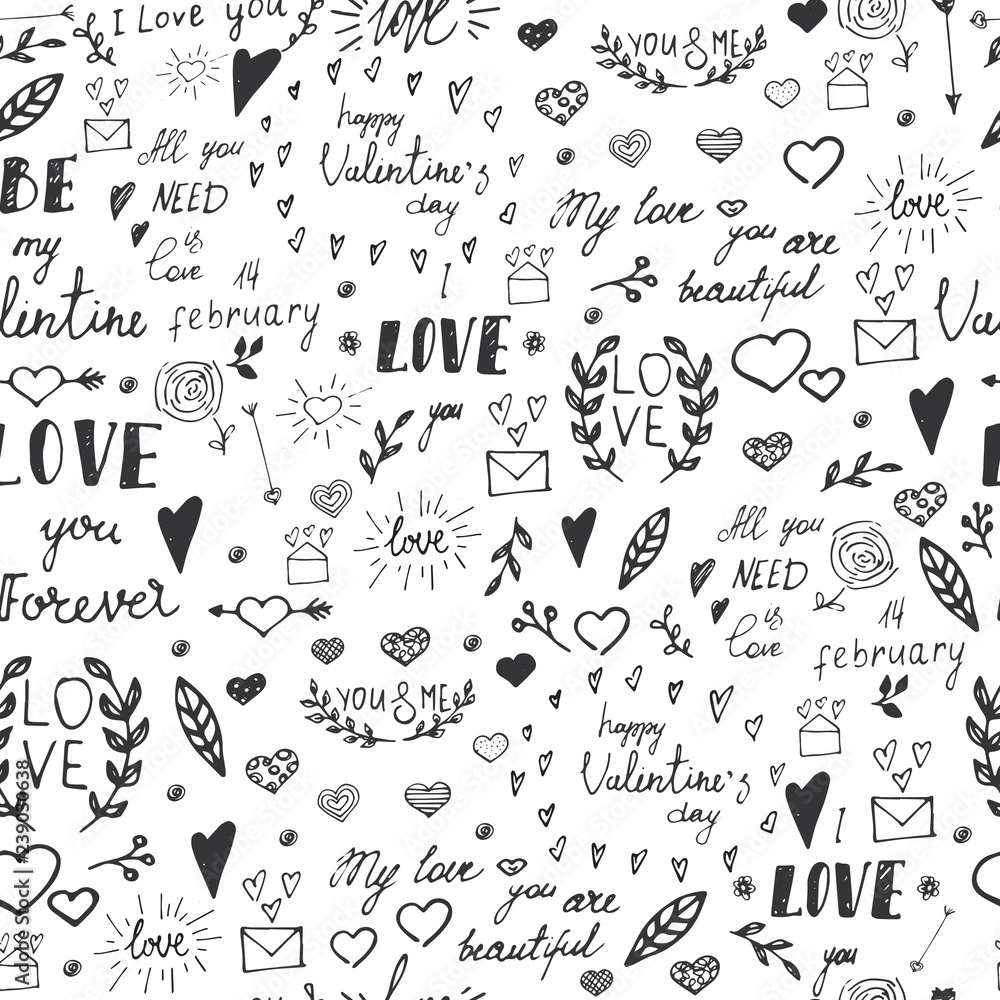 I Love you
love
YOU & ME
happy
Valentine's
day
All you
NEED
is
love
14
february
BE
my
lentine
My love
you are
beautiful
love
Va
I
LOVE
you
LO
VE
LOVE
you
Forever
love
All you
NEED
is
love
14
february
LO
VE
YOU & ME
happy
Valentine's
day
My love
you are
beautiful
I
LOVE
you
love
Adobe Stock | #239050638